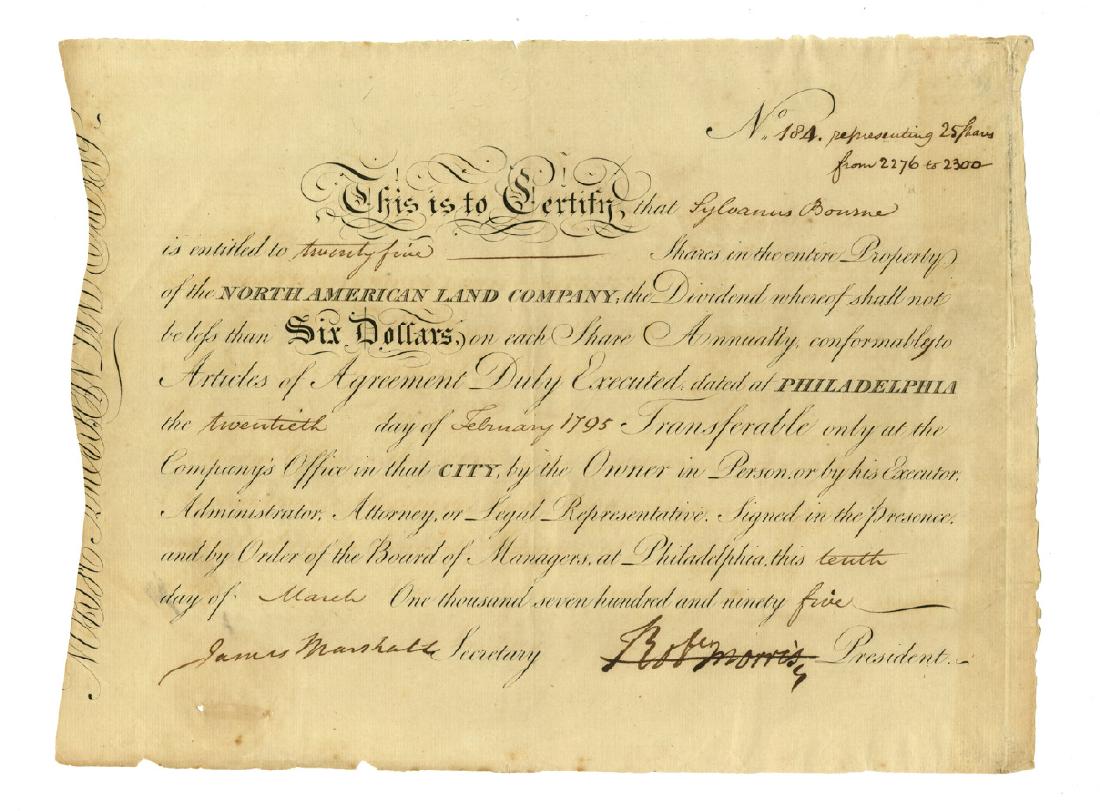 No. 184. representing 25 Shares
from 2276 to 2300
This is to Certify, that Sylvanus Bourne
is entitled to twenty five Shares in the entire Property
of the NORTH AMERICAN LAND COMPANY, the Dividend whereof shall not
be less than Six Dollars, on each Share Annually, conformably to
Articles of Agreement Duly Executed, dated at PHILADELPHIA
the twentieth day of February 1795 Transferable only at the
Company's Office in that CITY, by the Owner in Person, or by his Executor,
Administrator, Attorney, or Legal Representative. Signed in the Presence,
and by Order of the Board of Managers, at Philadelphia, this tenth
day of March One thousand seven hundred and ninety five
James Marshall Secretary Robt Morris President.
North American Land Company